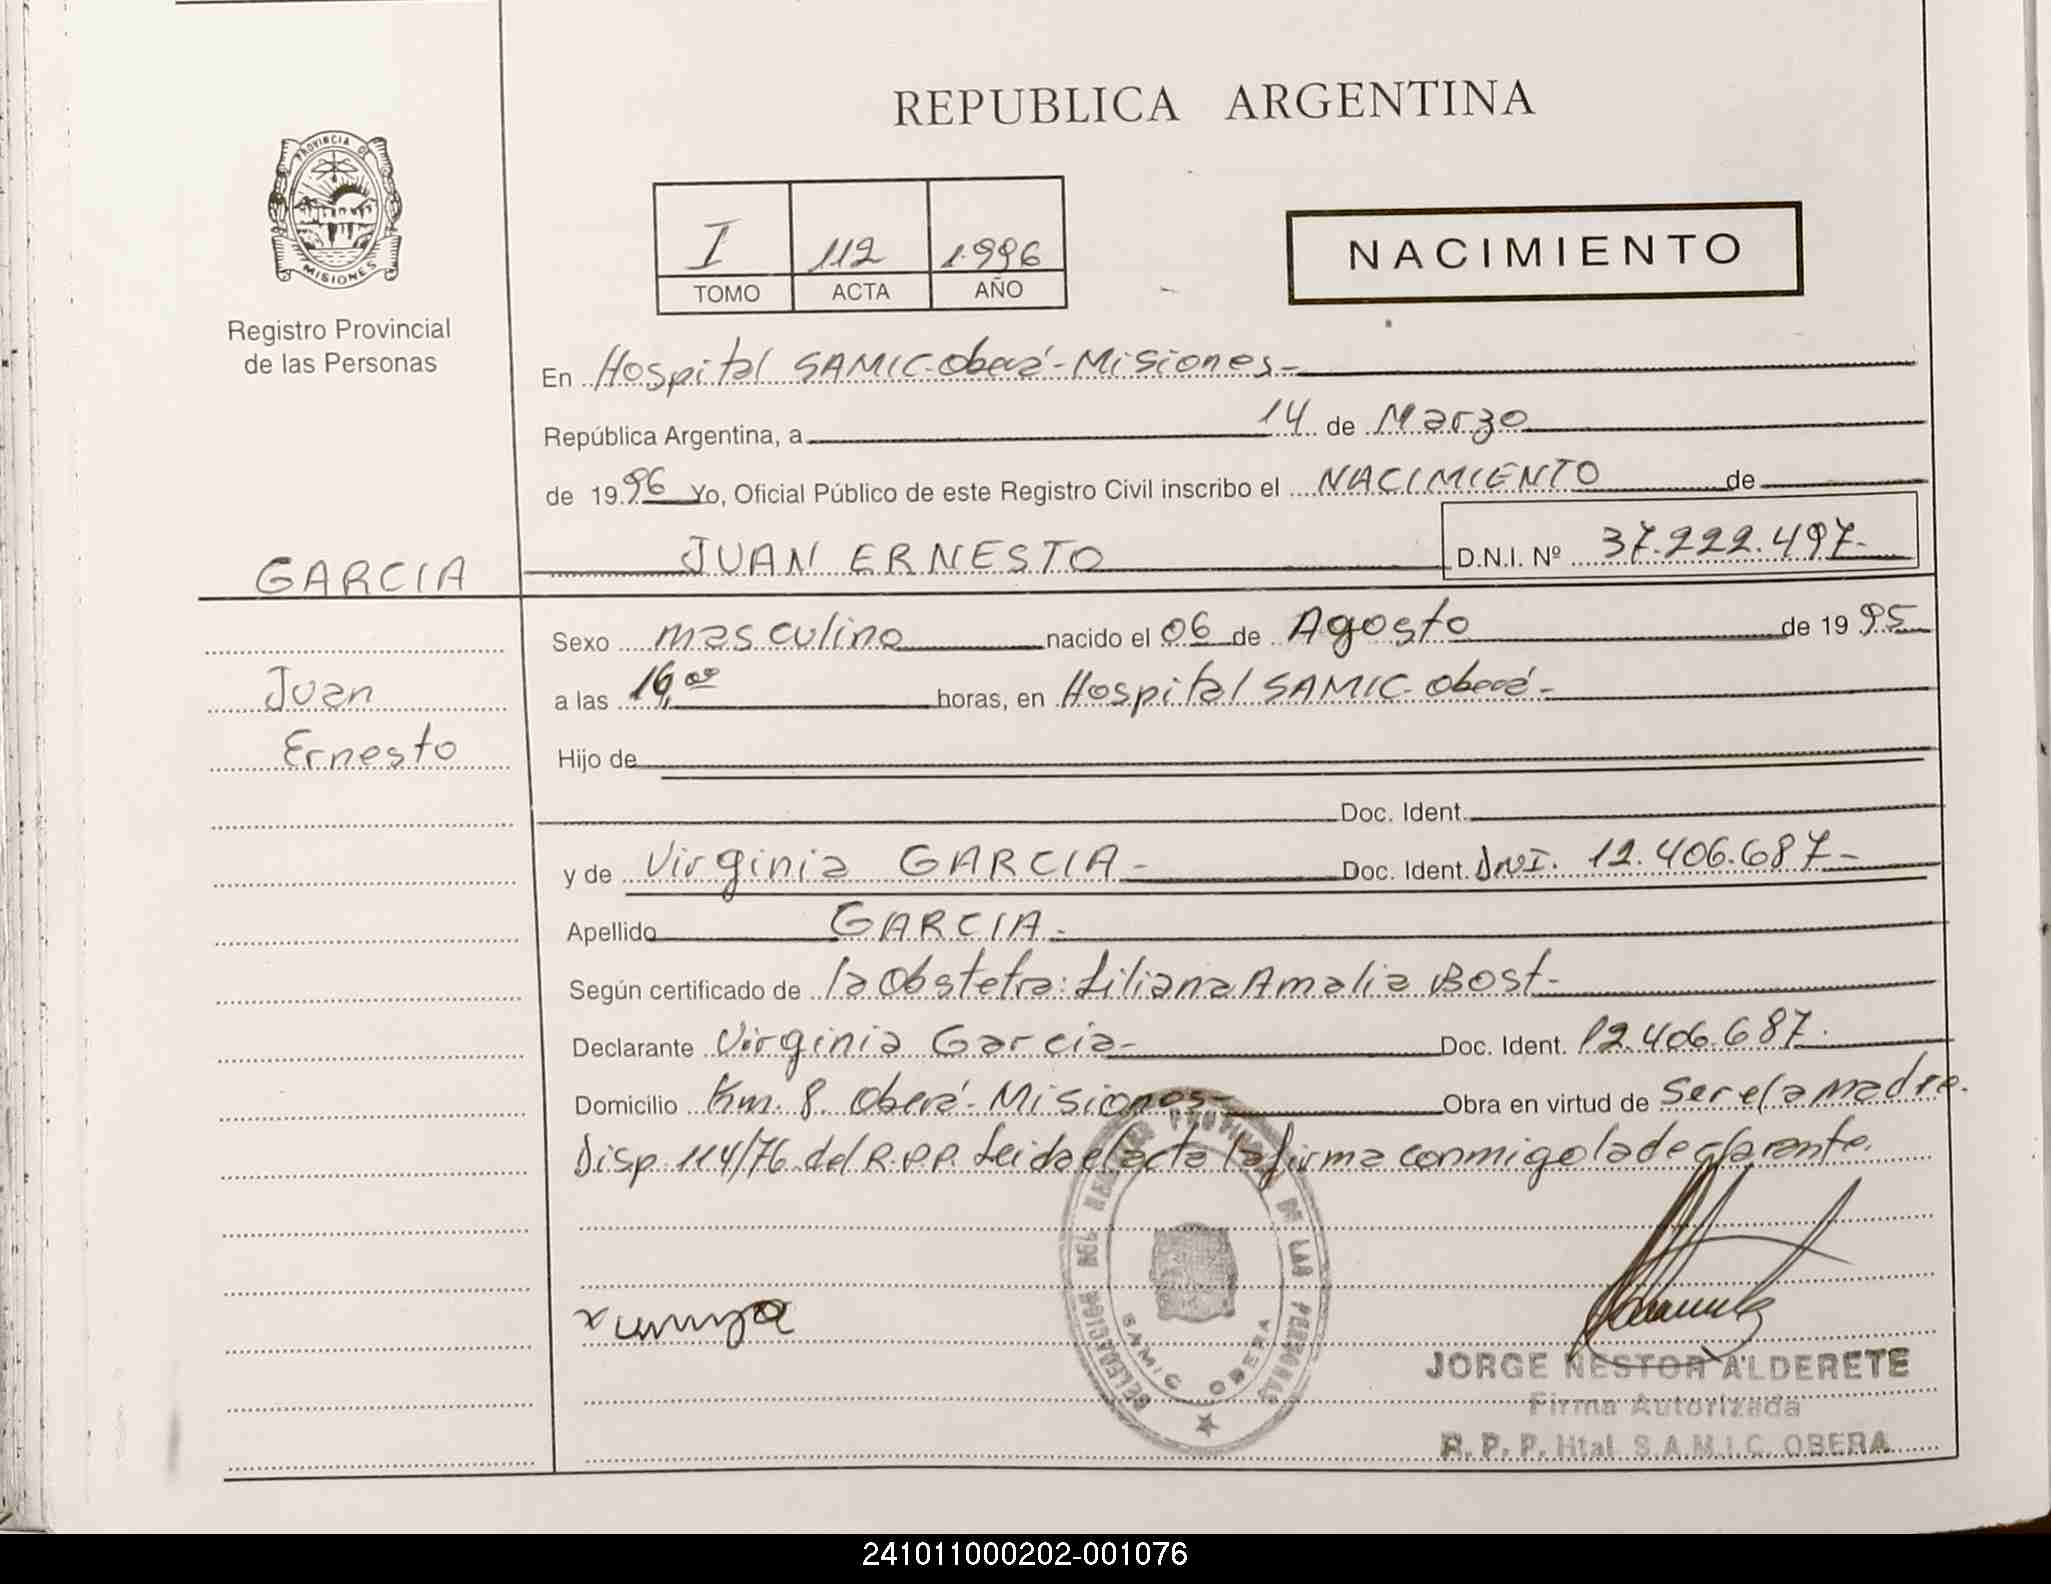 REPUBLICA ARGENTINA
PROVINCIA DE
MISIONES
Registro Provincial
de las Personas
I 112 1996
TOMO ACTA AÑO
NACIMIENTO
En Hospital SAMIC-Oberá-Misiones-
República Argentina, a 14 de Marzo
de 1996 Yo, Oficial Público de este Registro Civil inscribo el NACIMIENTO de
GARCIA JUAN ERNESTO D.N.I. Nº 37.222.497-
Sexo masculino nacido el 06 de Agosto de 1995
Juan
a las 16,00 horas, en Hospital SAMIC-Oberá-
Ernesto
Hijo de
Doc. Ident.
y de Virginia GARCIA- Doc. Ident. DNI. 12.406.687-
Apellido GARCIA-
Según certificado de la Obstetra: Liliana Amalia Bost-
Declarante Virginia Garcia- Doc. Ident. 12.406.687.
Domicilio Km. 8. Oberá-Misiones- Obra en virtud de ser ela madre.
Disp. 114/76 del R.P.P. Leida el acta la firma conmigo la declarante.
DELEGACION DEL REGISTRO PROVINCIAL DE LAS PERSONAS
SAMIC OBERA
JORGE NESTOR ALDERETE
Firma Autorizada
R. P. P. Htal. S.A.M.I.C. OBERA
241011000202-001076